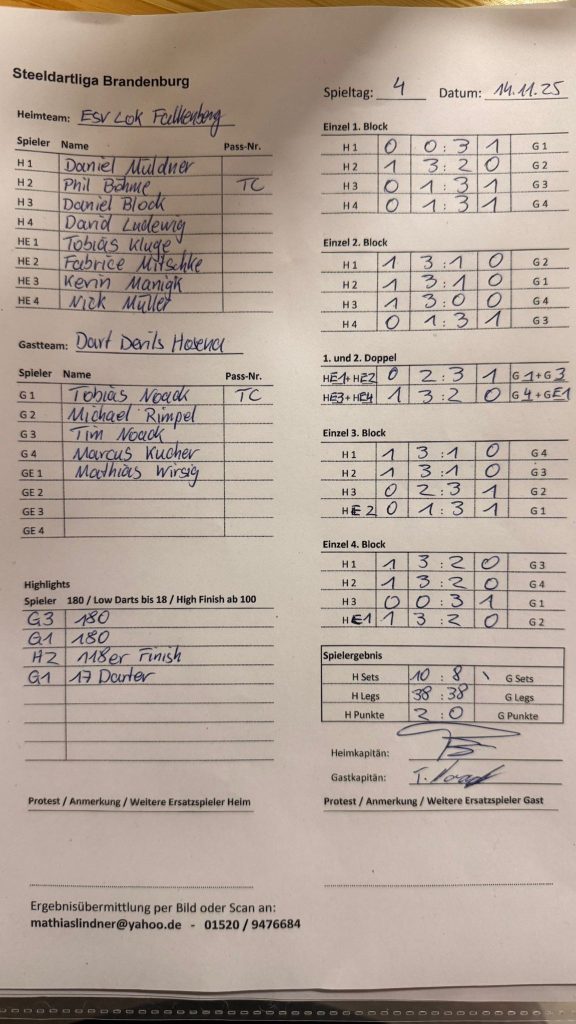 Steeldartliga Brandenburg
Heimteam: ESV Lok Falkenberg
Spieler Name Pass-Nr.
H 1 Daniel Müldner
H 2 Phil Böhme TC
H 3 Daniel Block
H 4 David Ludewig
HE 1 Tobias Kluge
HE 2 Fabrice Mitschke
HE 3 Kevin Manigk
HE 4 Nick Müller
Gastteam: Dart Devils Hosena
Spieler Name Pass-Nr.
G 1 Tobias Noack TC
G 2 Michael Rimpel
G 3 Tim Noack
G 4 Marcus Kucher
GE 1 Mathias Wirsig
GE 2
GE 3
GE 4
Highlights
Spieler 180 / Low Darts bis 18 / High Finish ab 100
G3 180
G1 180
H2 118er Finish
G1 17 Darter
Protest / Anmerkung / Weitere Ersatzspieler Heim
Ergebnisübermittlung per Bild oder Scan an:
mathiaslindner@yahoo.de - 01520 / 9476684
Spieltag: 4 Datum: 14.11.25
Einzel 1. Block
H 1 0 0 : 3 1 G 1
H 2 1 3 : 2 0 G 2
H 3 0 1 : 3 1 G 3
H 4 0 1 : 3 1 G 4
Einzel 2. Block
H 1 1 3 : 1 0 G 2
H 2 1 3 : 1 0 G 1
H 3 1 3 : 0 0 G 4
H 4 0 1 : 3 1 G 3
1. und 2. Doppel
HE1+HE2 0 2 : 3 1 G 1+G 3
HE3+HE4 1 3 : 2 0 G 4+GE1
Einzel 3. Block
H 1 1 3 : 1 0 G 4
H 2 1 3 : 1 0 G 3
H 3 0 2 : 3 1 G 2
HE 2 0 1 : 3 1 G 1
Einzel 4. Block
H 1 1 3 : 2 0 G 3
H 2 1 3 : 2 0 G 4
H 3 0 0 : 3 1 G 1
HE1 1 3 : 2 0 G 2
Spielergebnis
H Sets 10 : 8 G Sets
H Legs 38 : 38 G Legs
H Punkte 2 : 0 G Punkte
Heimkapitän:
Gastkapitän: T. Noack
Protest / Anmerkung / Weitere Ersatzspieler Gast